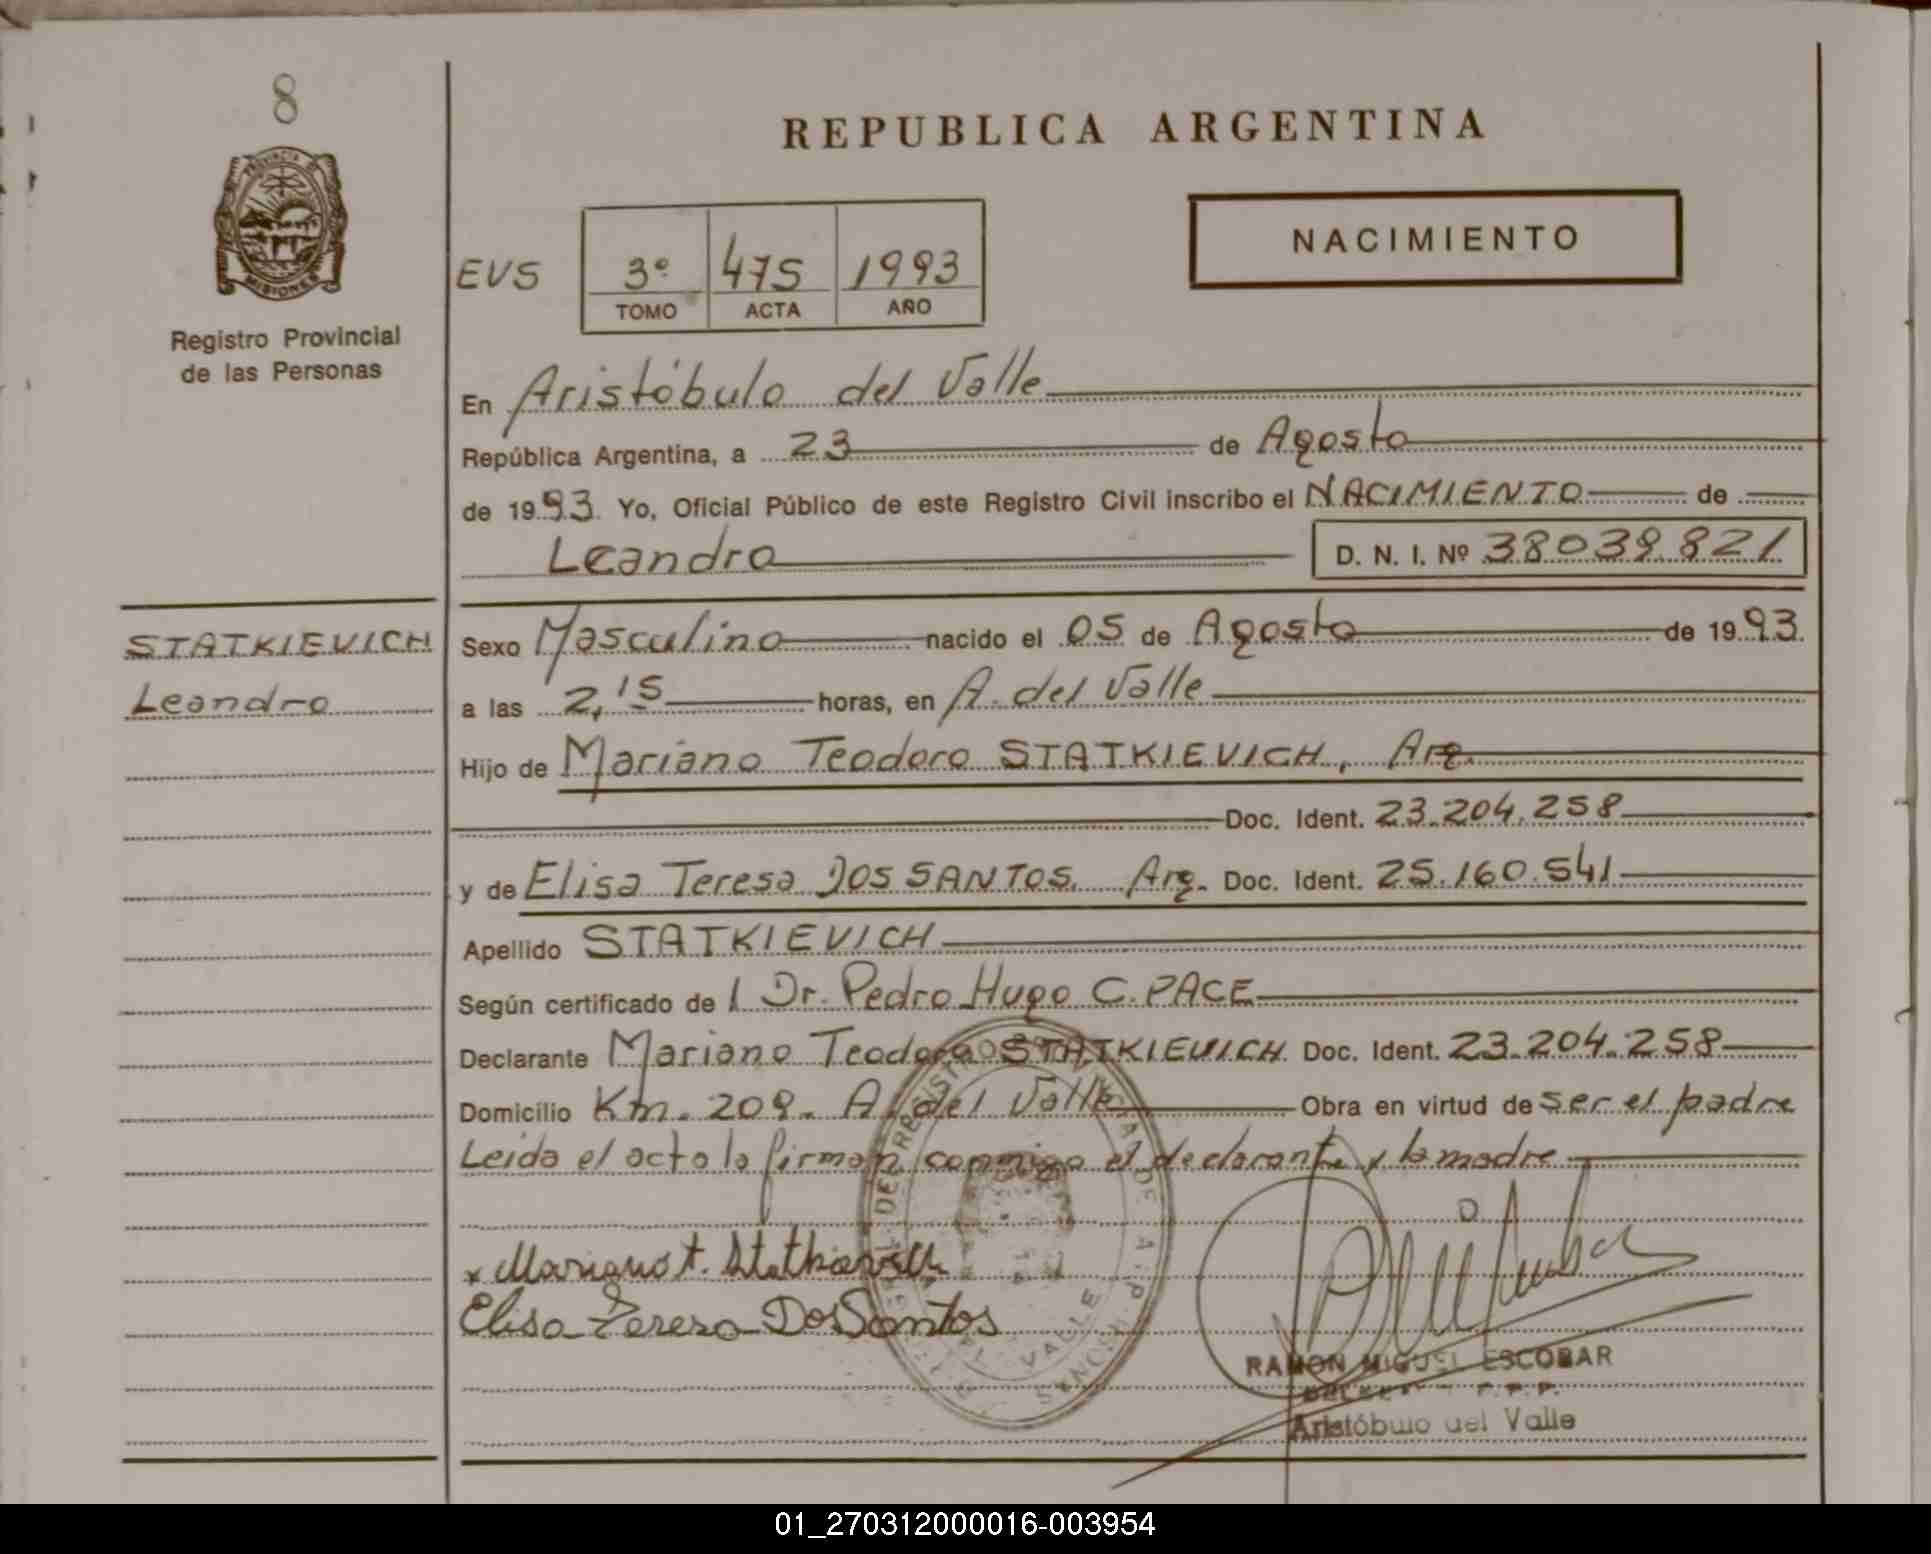 8
PROVINCIA DE
MISIONES
Registro Provincial
de las Personas
REPUBLICA ARGENTINA
NACIMIENTO
EVS 3º 475 1993
TOMO ACTA AÑO
En Aristóbulo del Valle
República Argentina, a 23 de Agosto
de 1993 Yo, Oficial Público de este Registro Civil inscribo el NACIMIENTO de
Leandro D. N. I. Nº 38039821
STATKIEVICH
Leandro
Sexo Masculino nacido el 05 de Agosto de 1993
a las 2,15 horas, en A. del Valle
Hijo de Mariano Teodoro STATKIEVICH, Arg.
Doc. Ident. 23.204.258
y de Elisa Teresa DOS SANTOS. Arg. Doc. Ident. 25.160.541
Apellido STATKIEVICH
Según certificado de l Dr. Pedro Hugo C. PACE
Declarante Mariano Teodoro STATKIEVICH Doc. Ident. 23.204.258
Domicilio Km. 209. A. del Valle Obra en virtud de ser el padre
Leida el acta la firman conmigo el declarante y la madre
x Mariano t. Statkievich
Elisa Teresa Dos Santos
VALLE
MISIONES
RAMON MIGUEL ESCOBAR
Aristóbulo del Valle
01_270312000016-003954